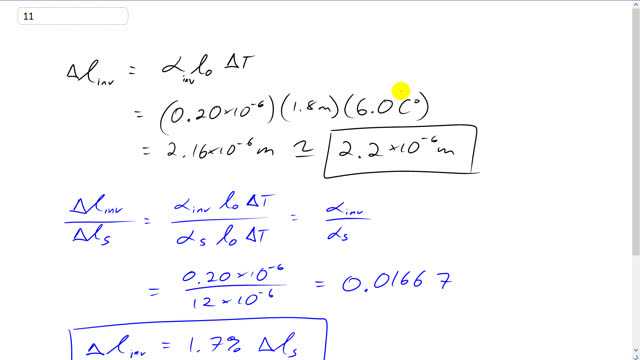 11
Δl_inv = α_inv l₀ ΔT
= (0.20×10⁻⁶)(1.8m)(6.0 C°)
= 2.16×10⁻⁶ m ≃ 2.2×10⁻⁶ m
Δl_inv / Δl_s = α_inv l₀ ΔT / α_s l₀ ΔT = α_inv / α_s
= 0.20×10⁻⁶ / 12×10⁻⁶ = 0.0166 7
Δl_inv = 1.7% Δl_s